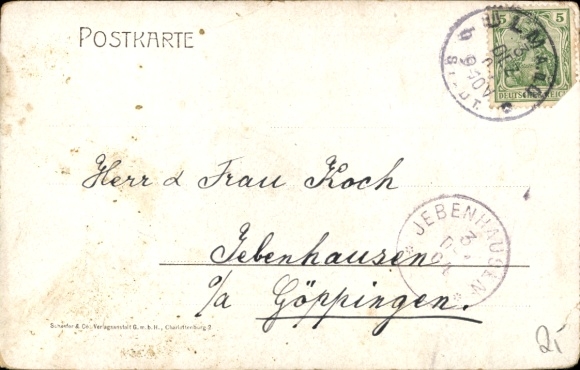 POSTKARTE
5 5
ULM
STADT.
DEUTSCHES REICH
Herr d Frau Koch
JEBENHAUSEN
Jebenhausen
o/a Göppingen.
Schaefer & Co., Verlagsanstalt G. m. b. H., Charlottenburg 2
2.-